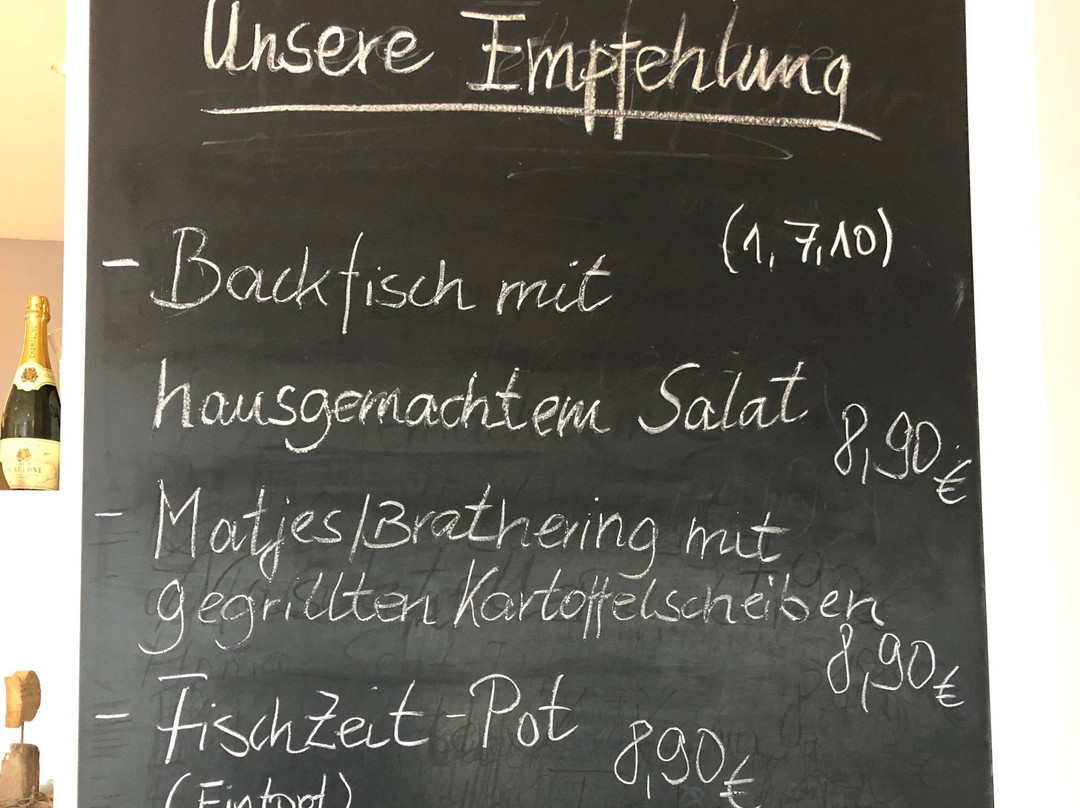 Unsere Empfehlung
(1,7,10)
- Backfisch mit
hausgemachtem Salat
8,90 €
- Matjes/Brathering mit
gegrillten Kartoffelscheiben
8,90 €
- FischZeit-Pot
8,90 €
(Eintopf)